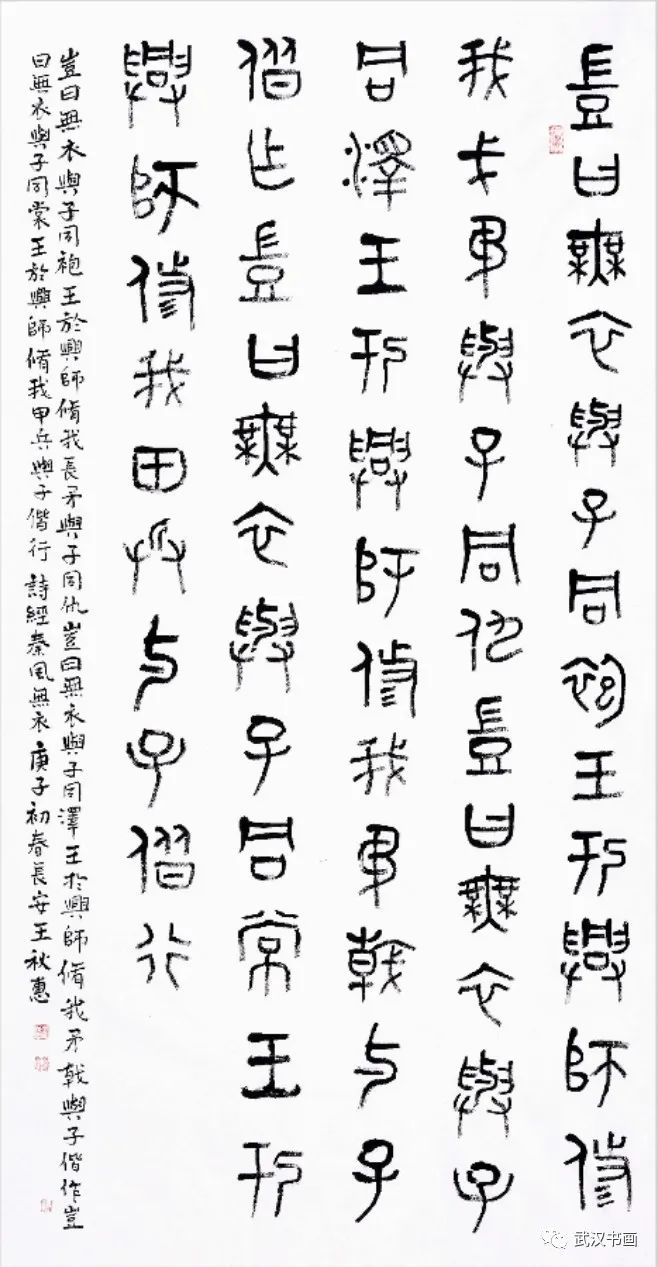 豈曰無衣與子同袍王於興師脩
我戈矛與子同仇豈曰無衣與子
同澤王於興師脩我矛戟与子
偕作豈曰無衣與子同常王於
興師脩我甲兵与子偕行
豈曰無衣與子同袍王於興師脩我長矛與子同仇豈曰無衣與子同澤王於興師脩我矛戟與子偕作豈
曰無衣與子同棠王於興師脩我甲兵與子偕行 詩經秦風無衣 庚子初春長安王秋惠
武汉书画